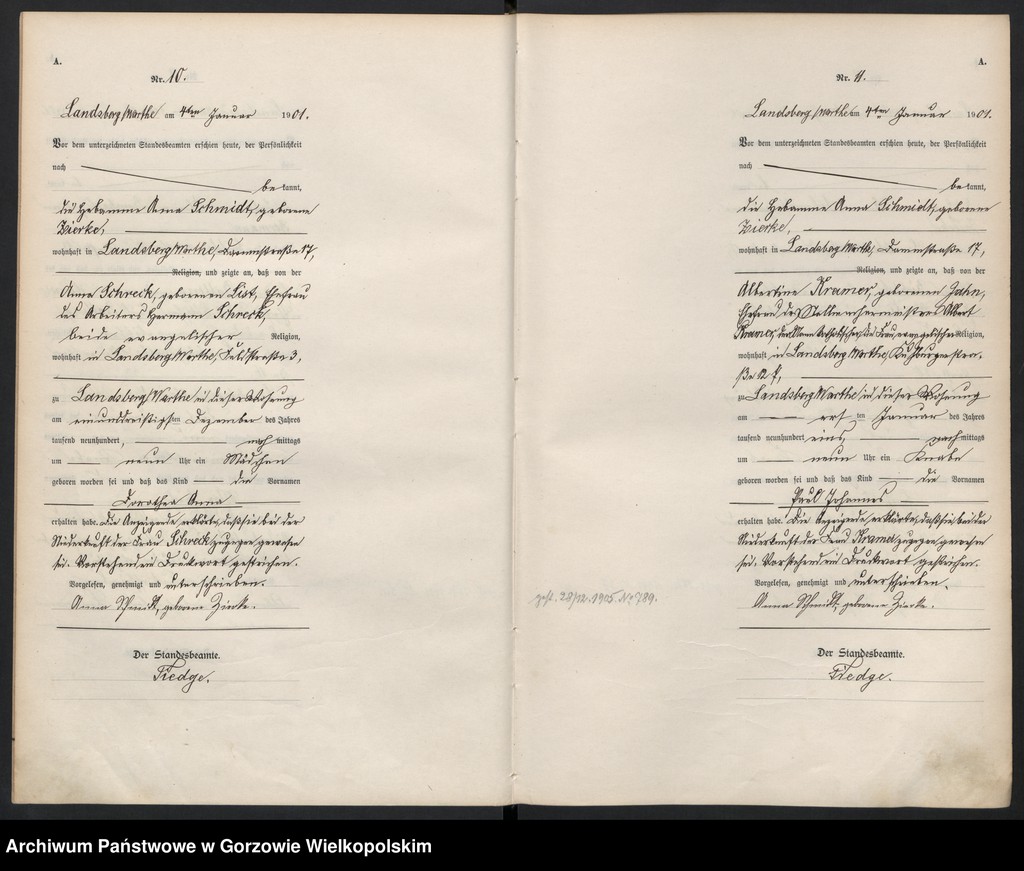 A.
Nr. 10.
Landsberg/Warthe am 4ten Januar 1901.
Vor dem unterzeichneten Standesbeamten erschien heute, der Persönlichkeit
nach
bekannt,
die Hebamme Anna Schmidt, geborene
Zierke,
wohnhaft in Landsberg/Warthe, Dammstraße 17,
Religion, und zeigte an, daß von der
Anna Schreck, geborenen List, Ehefrau
des Arbeiters Hermann Schreck,
beide evangelischer Religion,
wohnhaft in Landsberg/Warthe, Feldstraße 3,
zu Landsberg/Warthe in dieser Wohnung
am einunddreißigsten Dezember des Jahres
tausend neunhundert, nachmittags
um neun Uhr ein Mädchen
geboren worden sei und daß das Kind die Vornamen
Dorothea Anna
erhalten habe. Die Anzeigende erklärte, daß sie bei der
Niederkunft der Frau Schreck zugegen gewesen
sei. Vorstehend ein Druckwort gestrichen.
Vorgelesen, genehmigt und unterschrieben.
Anna Schmidt, geborene Zierke.
Der Standesbeamte.
Tiedge.
A.
Nr. 11.
Landsberg/Warthe am 4ten Januar 1901.
Vor dem unterzeichneten Standesbeamten erschien heute, der Persönlichkeit
nach
bekannt,
die Hebamme Anna Schmidt, geborene
Zierke,
wohnhaft in Landsberg/Warthe, Dammstraße 17,
Religion, und zeigte an, daß von der
Albertine Kramer, geborenen Jahn,
Ehefrau des Stellmachermeisters Albert
Kramer, der Mann katholischer, die Frau evangelischer Religion,
wohnhaft in Landsberg/Warthe,
ße 27,
zu Landsberg/Warthe in dieser Wohnung
am ersten Januar des Jahres
tausend neunhundert eins, nachmittags
um neun Uhr ein Knabe
geboren worden sei und daß das Kind die Vornamen
Paul Johannes
erhalten habe. Die Anzeigende erklärte, daß sie bei der
Niederkunft der Frau Kramer zugegen gewesen
sei. Vorstehend ein Druckwort gestrichen.
Vorgelesen, genehmigt und unterschrieben.
Anna Schmidt, geborene Zierke.
gest. 28/12.1905 No 789.
Der Standesbeamte.
Tiedge.
Archiwum Państwowe w Gorzowie Wielkopolskim